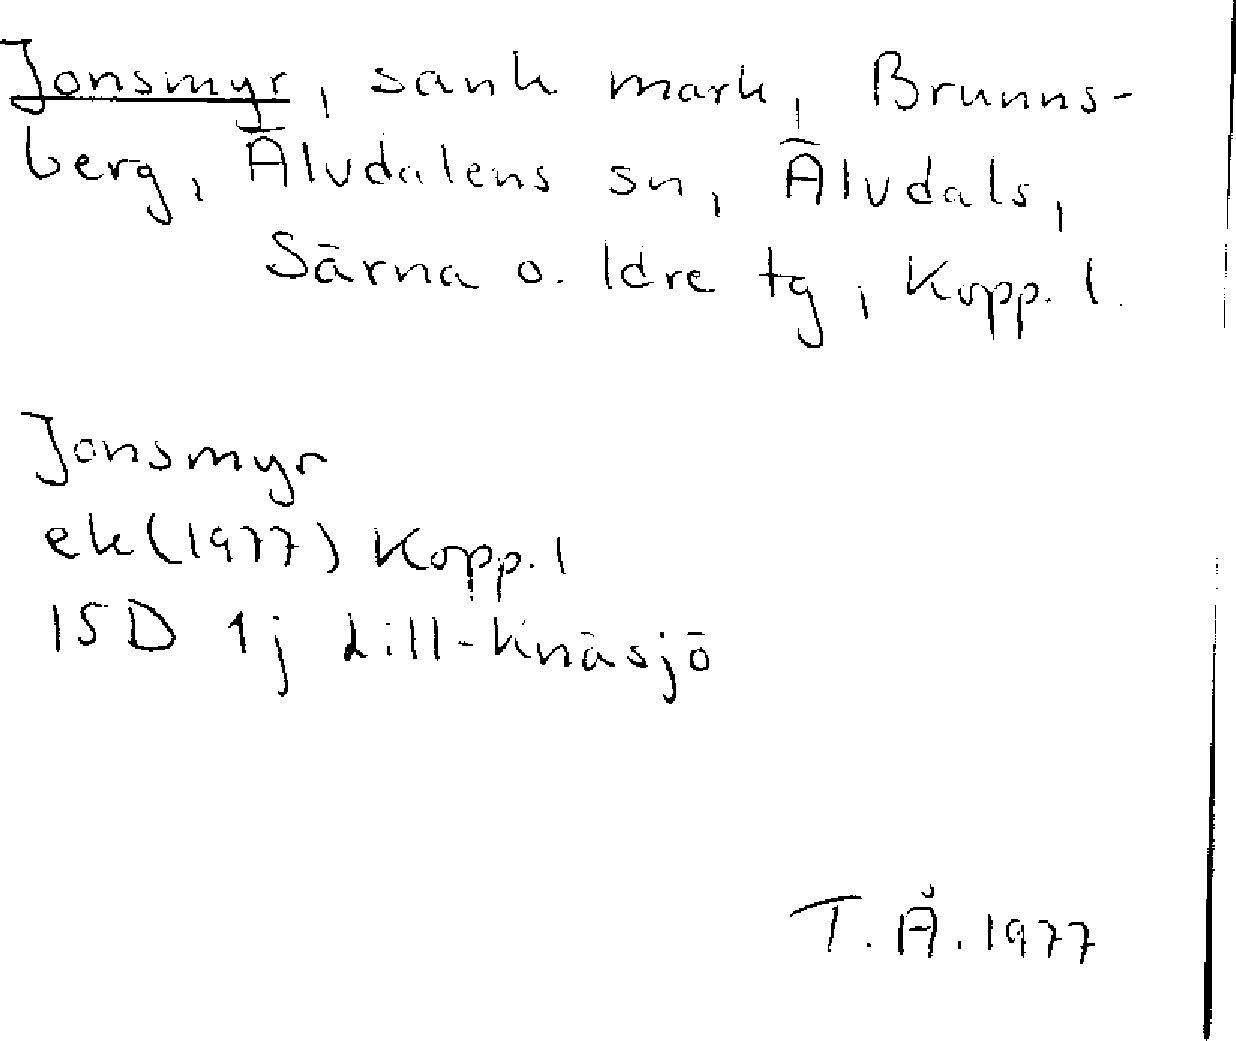 Jonsmyr, sank mark, Brunns-
berg, Älvdalens sn, Älvdals,
Särna o. Idre tg, Kopp. l.
Jonsmyr
ek (1977) Kopp. l
15D 1j Lill-Knäsjö
T. Å. 1977